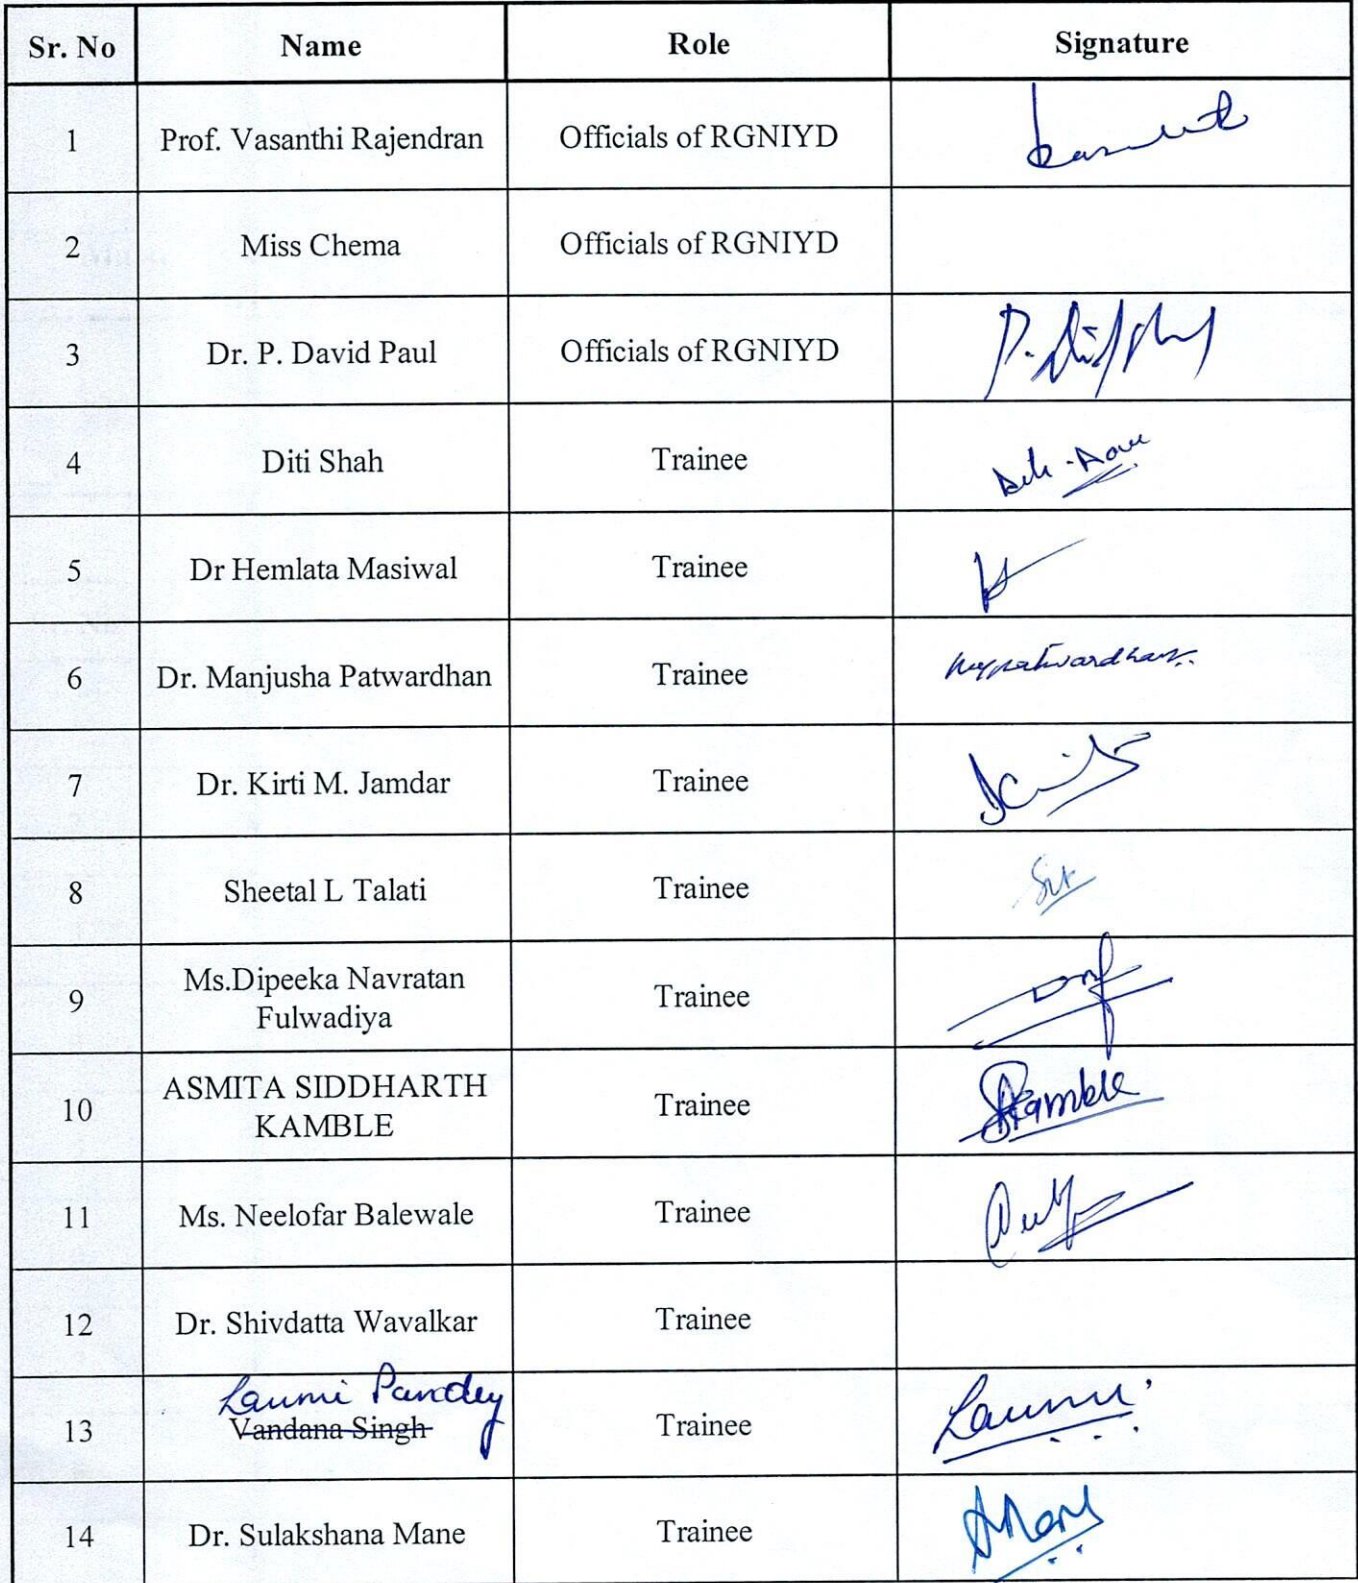 Sr. No Name Role Signature
1 Prof. Vasanthi Rajendran Officials of RGNIYD
2 Miss Chema Officials of RGNIYD
3 Dr. P. David Paul Officials of RGNIYD
4 Diti Shah Trainee
5 Dr Hemlata Masiwal Trainee
6 Dr. Manjusha Patwardhan Trainee
7 Dr. Kirti M. Jamdar Trainee
8 Sheetal L Talati Trainee
Ms.Dipeeka Navratan
9 Fulwadiya Trainee
ASMITA SIDDHARTH
10 KAMBLE Trainee Kamble
11 Ms. Neelofar Balewale Trainee
12 Dr. Shivdatta Wavalkar Trainee
Laxmi Pandey
13 Vandana Singh Trainee Laxmi
14 Dr. Sulakshana Mane Trainee